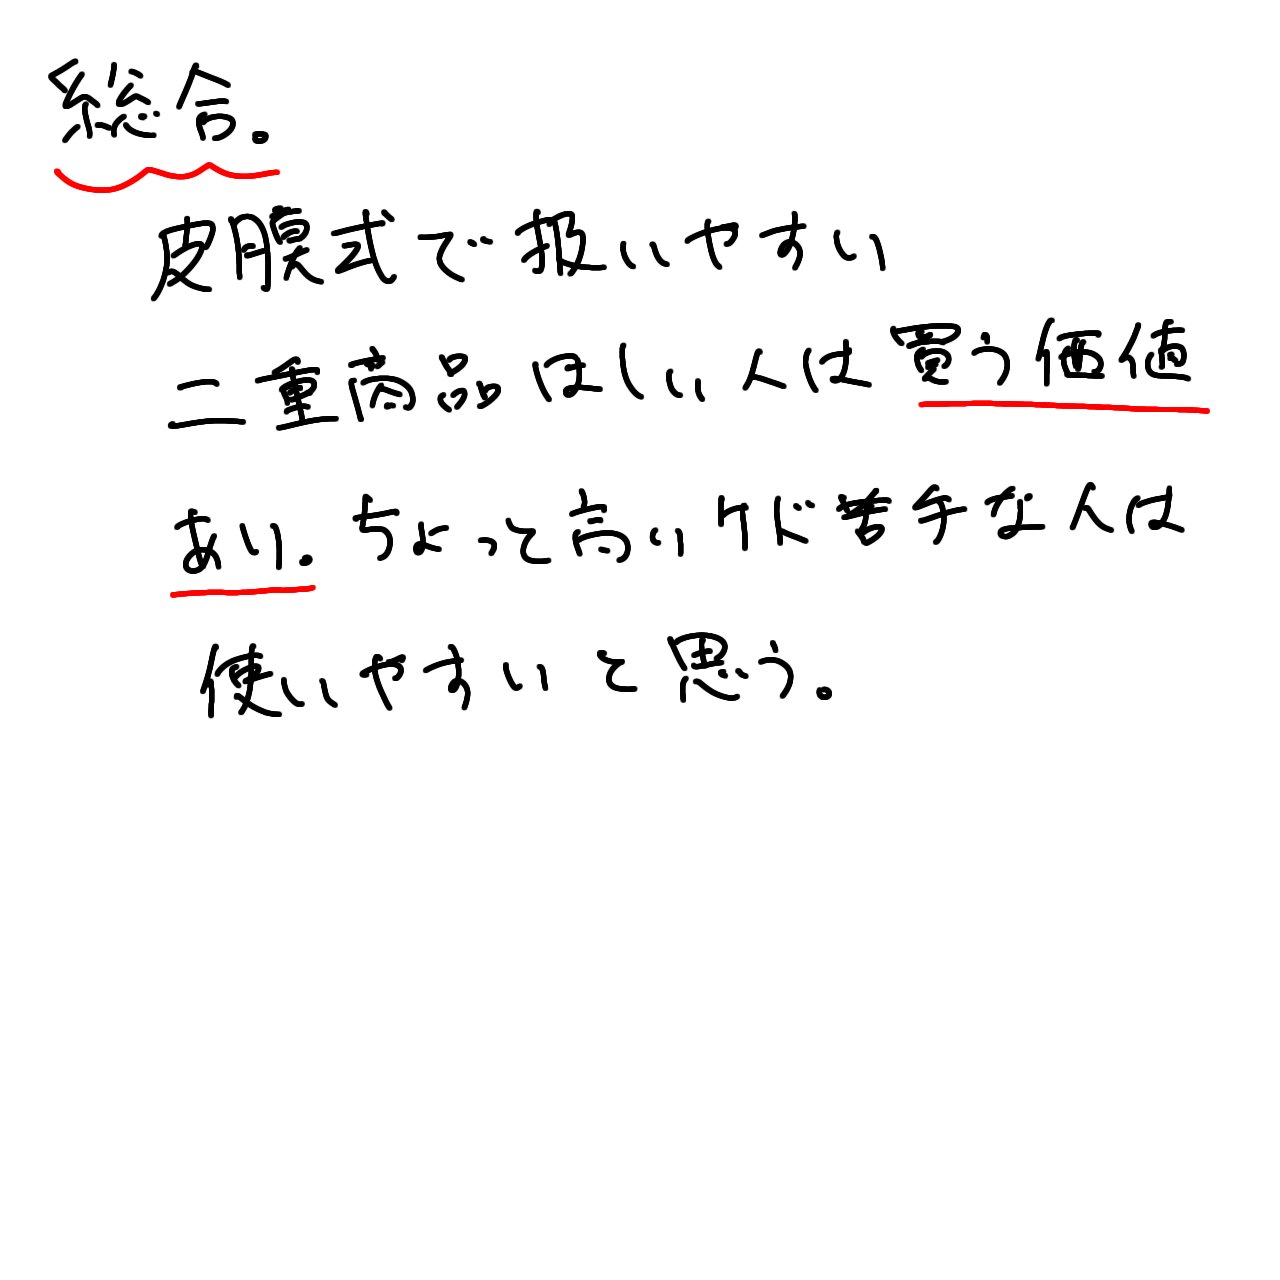 総合。
皮膜式で扱いやすい
二重商品ほしい人は買う価値
あり。ちょっと高いケド苦手な人は
使いやすいと思う。